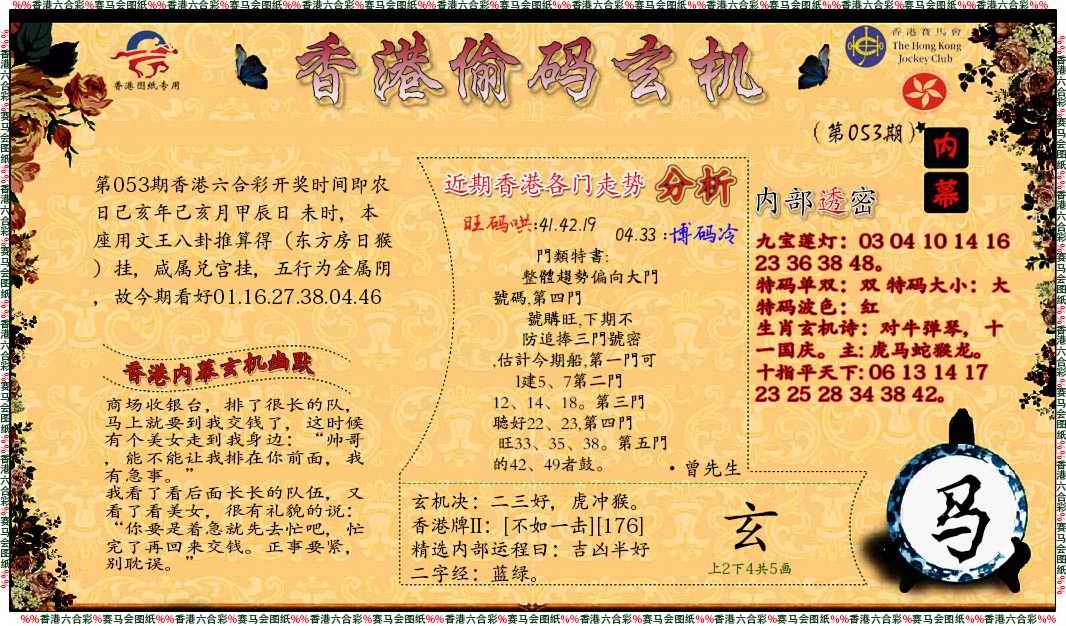 %%香港六合彩%赛马会图纸%%香港六合彩%赛马会图纸%%香港六合彩%赛马会图纸%%香港六合彩%赛马会图纸%%香港六合彩%赛马会图纸%%香港六合彩%赛马会图纸%%香港六合彩%%
香港图纸专用
香港偷码玄机
香港賽馬會
The Hong Kong
Jockey Club
(第053期)
内
幕
第053期香港六合彩开奖时间即农
日己亥年己亥月甲辰日 未时，本
座用文王八卦推算得（东方房日猴
）挂，咸属兑宫挂，五行为金属阴
，故今期看好01.16.27.38.04.46
香港内幕玄机幽默
商场收银台，排了很长的队，
马上就要到我交钱了，这时候
有个美女走到我身边：“帅哥
，能不能让我排在你前面，我
有急事。”
我看了看后面长长的队伍，又
看了看美女，很有礼貌的说：
“你要是着急就先去忙吧，忙
完了再回来交钱。正事要紧，
别耽误。”
近期香港各门走势 分析
旺码哄:41.42.19
04.33 :博码冷
門類特書:
整體趨勢偏向大門
號碼,第四門
號購旺,下期不
防追捧三門號密
,估計今期船,第一門可
1建5、7第二門
12、14、18。第三門
聽好22、23,第四門
旺33、35、38。第五門
的42、49者鼓。
·曾先生
玄机决：二三好，虎冲猴。
香港牌II：[不如一击][176]
精选内部运程曰：吉凶半好
二字经：蓝绿。
玄
上2下4共5画
内部透密
九宝莲灯：03 04 10 14 16
23 36 38 48。
特码单双：双 特码大小：大
特码波色：红
生肖玄机诗：对牛弹琴，十
一国庆。主: 虎马蛇猴龙。
十指平天下: 06 13 14 17
23 25 28 34 38 42。
马
%%香港六合彩%赛马会图纸%%香港六合彩%赛马会图纸%%香港六合彩%赛马会图纸%%香港六合彩%赛马会图纸%%香港六合彩%赛马会图纸%%香港六合彩%赛马会图纸%%香港六合彩%%